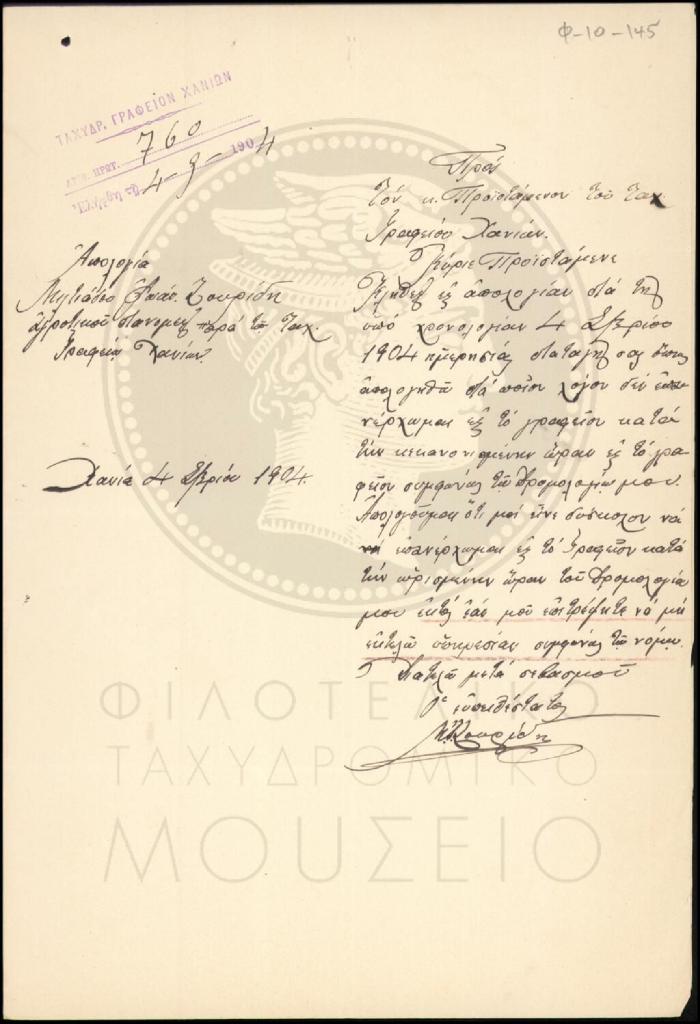 Φ-10-145
ΤΑΧΥΔΡ. ΓΡΑΦΕΙΟΝ ΧΑΝΙΩΝ
ΑΡΙΘ. ΠΡΩΤ. 760
4-9-1904
Πρός
Τόν κ. Προϊστάμενον τοῦ ταχ.
Γραφείου Χανίων.
Ἀπολογία
Μιλτιάδου Ζουρίδη
ἀγροτικοῦ διανομέως παρά τῷ ταχ.
Γραφείῳ Χανίων
Χανιά 4 7βρίου 1904.
Κύριε Προϊστάμενε
Κληθείς εἰς ἀπολογίαν διά τῆς
ὑπό χρονολογίαν 4 7βρίου
1904 ἡμερησίας διαταγῆς σας ὅπως
ἀπολογηθῶ διά ποῖον λόγον δέν ἐπα
νέρχωμαι εἰς τό γραφεῖον κατά
τήν κεκανονισμένην ὥραν εἰς τό γρα
φεῖον συμφώνως τῷ δρομολογίῳ μου.
Ἀπολογοῦμαι ὅτι μοί εἶνε δύσκολον νά
νά ἐπανέρχωμαι εἰς τό Γραφεῖον κατά
τήν ὡρισμένην ὥραν τοῦ δρομολογίου
μου ἐκτός ἐάν μοῦ ἐπιτρέψητε νά μή
ἐκτελῶ ὑπηρεσίαν συμφώνως τῷ νόμῳ.
Διατελῶ μετά σεβασμοῦ
εὐπειθέστατος
Μ. Ζουρίδης
ΦΙΛΟΤΕΛΙΚΟ
ΤΑΧΥΔΡΟΜΙΚΟ
ΜΟΥΣΕΙΟ